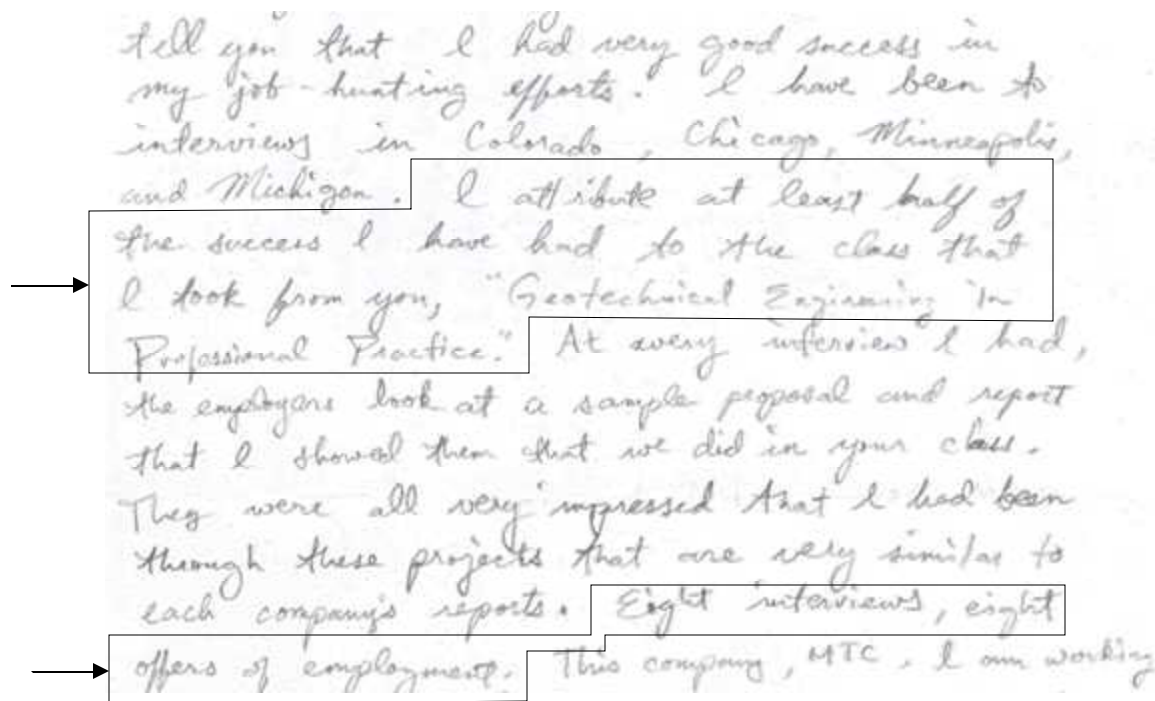 tell you that I had very good success in
my job-hunting efforts. I have been to
interviews in Colorado, Chicago, Minneapolis,
and Michigan. I attribute at least half of
the success I have had to the class that
I took from you, "Geotechnical Engineering In
Professional Practice." At every interview I had,
the employers look at a sample proposal and report
that I showed them that we did in your class.
They were all very impressed that I had been
through these projects that are very similar to
each company's reports. Eight interviews, eight
offers of employment. This company, MTC, I am working